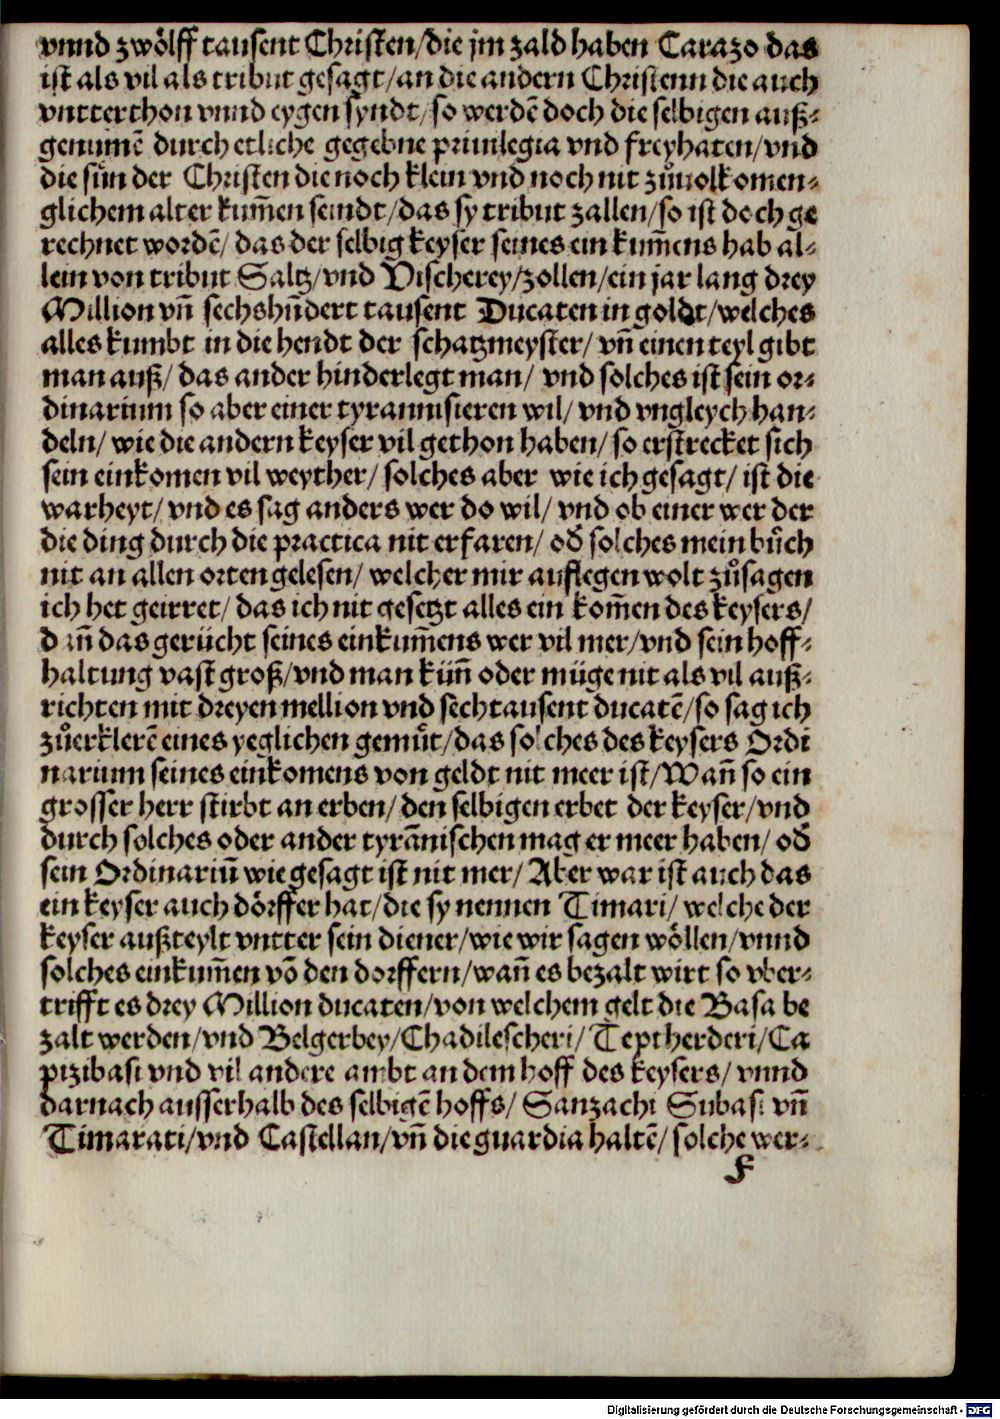 vnnd zwölff tausent Christen/die jm zald haben Carazo das
ist als vil als tribut gesagt/an die andern Christenn die auch
vntterthon vnnd eygen syndt/so werdē doch die selbigen auß-
genumē durch etliche gegebne priuilegia vnd freyhaten/vnd
die sün der Christen die noch klein vnd noch nit zůuolkomen-
glichem alter kum̄en seindt/das sy tribut zallen/so ist doch ge
rechnet wordē/das der selbig keyser seines ein kum̄ens hab al-
lein von tribut Saltz/vnd Vischerey/zollen/ein jar lang drey
Million vn̄ sechshūdert tausent Ducaten in goldt/welches
alles kumbt in die hendt der schatzmeyster/vn̄ einen teyl gibt
man auß/das ander hinderlegt man/vnd solches ist sein or-
dinarium so aber einer tyrannisieren wil/vnd vngleych han-
deln/wie die andern keyser vil gethon haben/so erstrecket sich
sein einkomen vil weyther/solches aber wie ich gesagt/ist die
warheyt/vnd es sag anders wer do wil/vnd ob einer wer der
die ding durch die practica nit erfaren/oď solches mein bůch
nit an allen orten gelesen/welcher mir aufflegen wolt zůsagen
ich het geirret/das ich nit gesetzt alles ein kom̄en des keysers/
dan̄ das gerücht seines einkum̄ens wer vil mer/vnd sein hoff-
haltung vast groß/vnd man kün̄ oder müge nit als vil auß-
richten mit dreyen mellion vnd sechtausent ducatē/so sag ich
zůerklerē eines yeglichen gemüt/das solches des keysers Ordi
narium seines einkomens von geldt nit meer ist/Wan̄ so ein
grosser herr stirbt an erben/den selbigen erbet der keyser/vnd
durch solches oder ander tyrānischen mag er meer haben/oď
sein Ordinariū wie gesagt ist nit mer/Aber war ist auch das
ein keyser auch dörffer hat/die sy nennen Timari/welche der
keyser außteylt vntter sein diener/wie wir sagen wöllen/vnnd
solches einkum̄en vō den dorffern/wan̄ es bezalt wirt so vber-
trifft es drey Million ducaten/von welchem gelt die Basa be
zalt werden/vnd Belgerbey/Chadilescheri/Teptherderi/Ca
pizibasi vnd vil andere ambt an dem hoff des keysers/vnnd
darnach ausserhalb des selbigē hoffs/Sanzachi Subasi vn̄
Timarati/vnd Castellan/vn̄ die guardia haltē/solche wer-
F
Digitalisierung gefördert durch die Deutsche Forschungsgemeinschaft - DFG